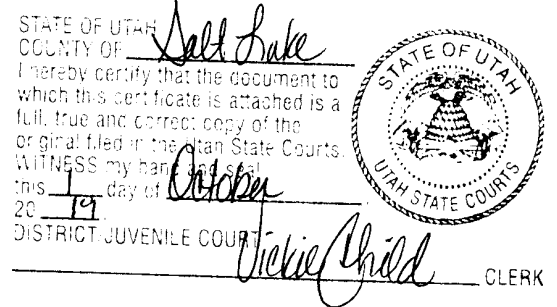 STATE OF UTAH
COUNTY OF Salt Lake
I hereby certify that the document to
which this certificate is attached is a
full, true and correct copy of the
original filed in the Utah State Courts.
WITNESS my hand and seal
this 1 day of October
20 19
DISTRICT/JUVENILE COURT
Vickie Child CLERK
STATE OF UTAH
UTAH STATE COURTS